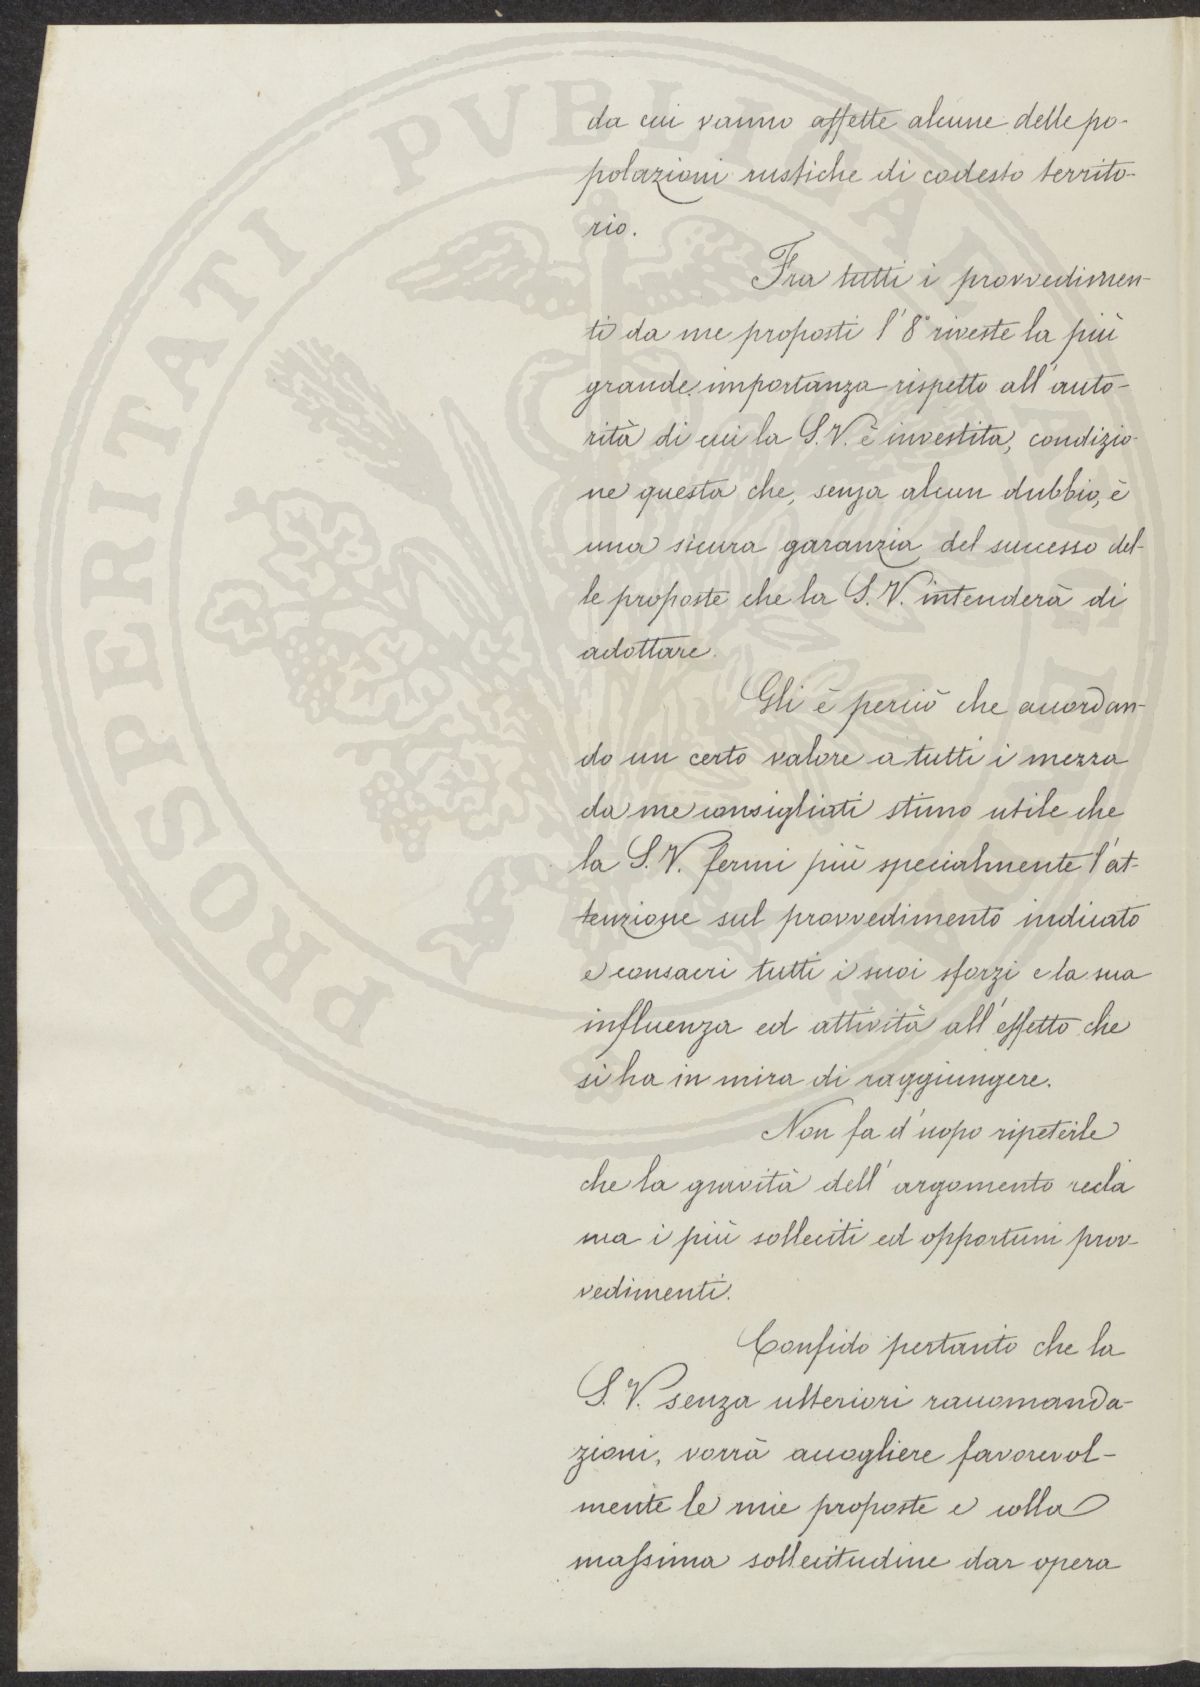 da cui vanno affette alcune delle po-
polazioni rustiche di codesto territo-
rio.
Fra tutti i provvedimen-
ti da me proposti l'8° riveste la più
grande importanza rispetto all'auto-
rità di cui la S.V. è investita, condizio-
ne questa che, senza alcun dubbio, è
una sicura garanzia del successo del-
le proposte che la S.V. intenderà di
adottare.
Gli è perciò che accordan-
do un certo valore a tutti i mezza
da me consigliati stimo utile che
la S.V. fermi più specialmente l'at-
tenzione sul provvedimento indicato
e consacri tutti i suoi sforzi e la sua
influenza ed attività all'effetto che
si ha in mira di raggiungere.
Non fa d'uopo ripeterle
che la gravità dell'argomento recla
ma i più solleciti ed opportuni prov-
vedimenti.
Confido pertanto che la
S.V. senza ulteriori raccomanda-
zioni, vorrà accogliere favorevol-
mente le mie proposte e colla
massima sollecitudine dar opera
PROSPERITATI PVBLICAE